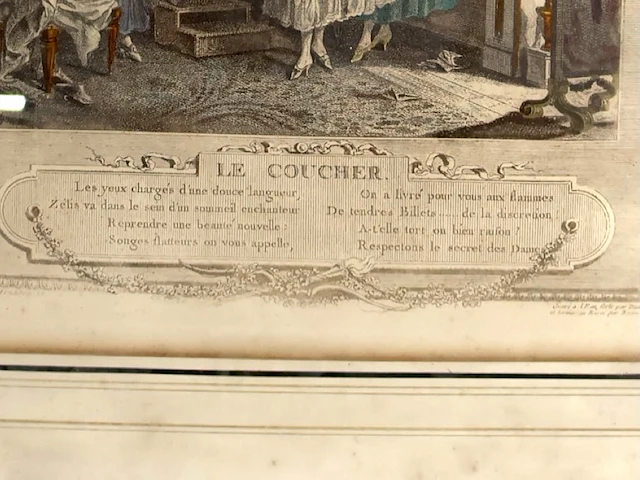 LE COUCHER.
Les yeux chargés d'une douce langueur,
Zélis va dans le sein d'un sommeil enchanteur
Reprendre une beauté nouvelle:
Songes flatteurs on vous appelle,
On a livré pour vous aux flammes
De tendres Billets ...... de la discretion!
A-t'elle tort ou bien raison?
Respectons le secret des Dames